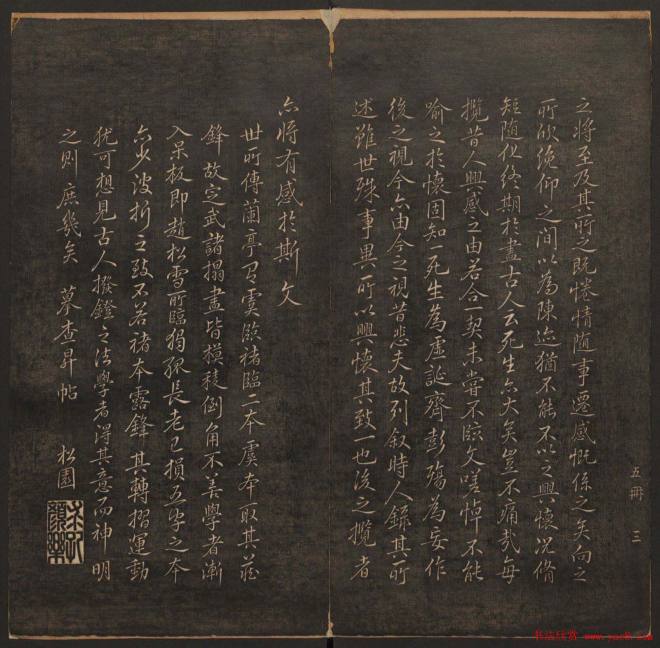 之将至及其所之既惓情随事遷感慨係之矣向之
所欣俛仰之間以為陳迹猶不能不以之興懷況脩
短随化終期於盡古人云死生亦大矣豈不痛哉每
攬昔人興感之由若合一契未嘗不臨文嗟悼不能
喻之於懷固知一死生為虛誕齊彭殤為妄作
後之視今亦由今之視昔悲夫故列叙時人錄其所
述雖世殊事異所以興懷其致一也後之攬者
亦将有感於斯文
世所傳蘭亭有虞臨褚臨二本虞本取其藏
鋒故定武諸搨畫皆橫稜倒角不善學者漸
入呆板即趙松雪所臨獨孤長老已損五字之本
亦少波折之致不若褚本露鋒其轉摺運動
猶可想見古人撥鐙之法學者得其意而神明
之則庶幾矣 摹查昇帖 松園
五冊 三
书法欣赏 www.yac8.com